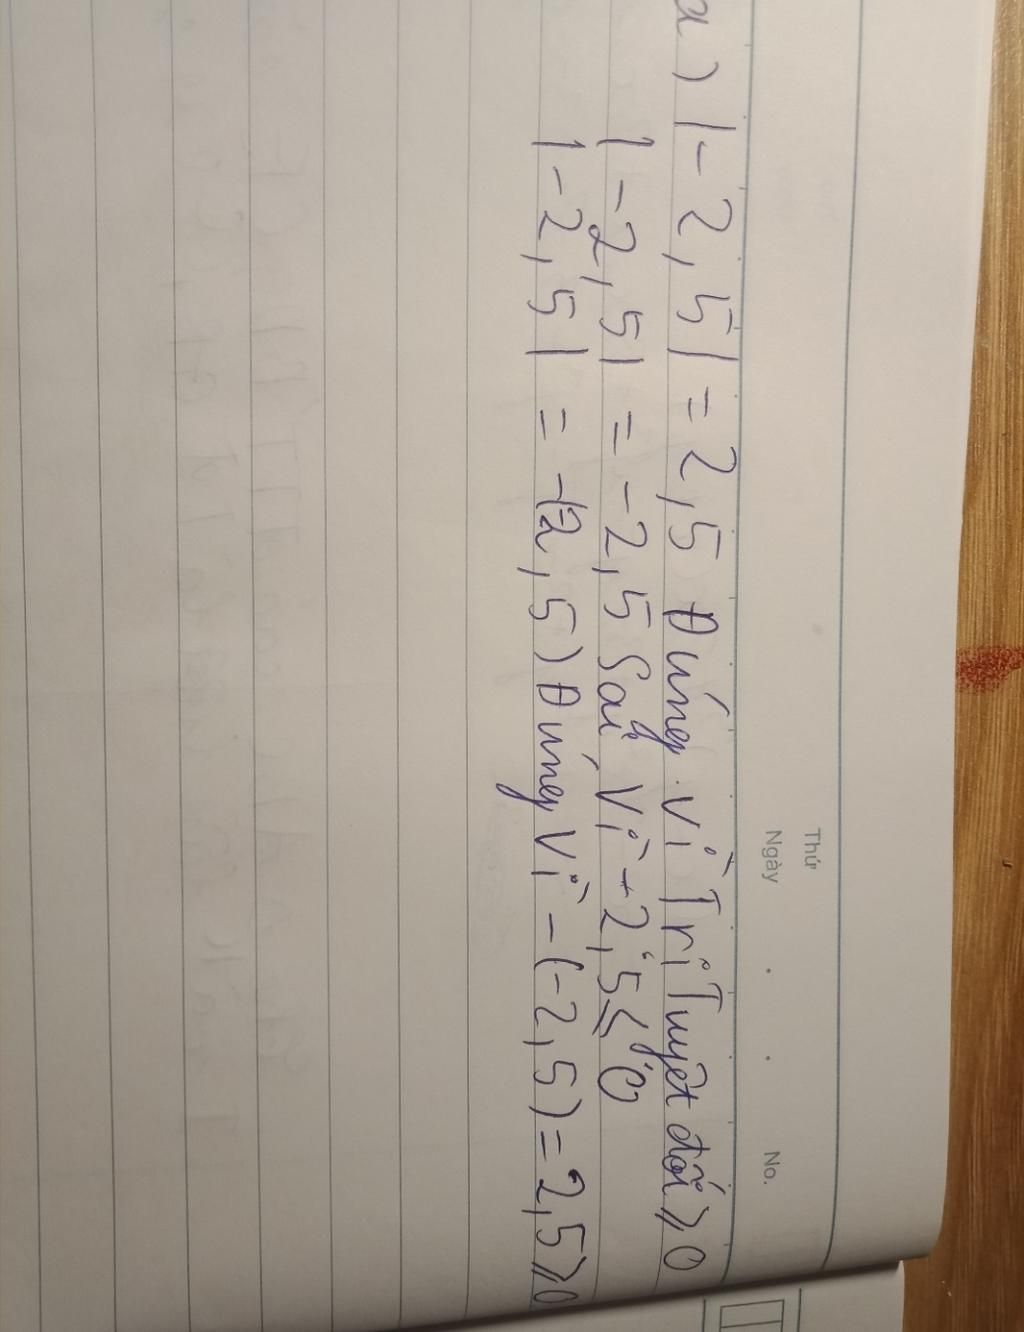 Thứ
Ngày . . No.
a) |-2,5| = 2,5 Đúng vì Trị Tuyệt đối ⩾ 0
|-2,5| = -2,5 Sai, Vì -2,5 ≤ 0
|-2,5| = -(-2,5) Đúng Vì -(-2,5) = 2,5 ⩾ 0